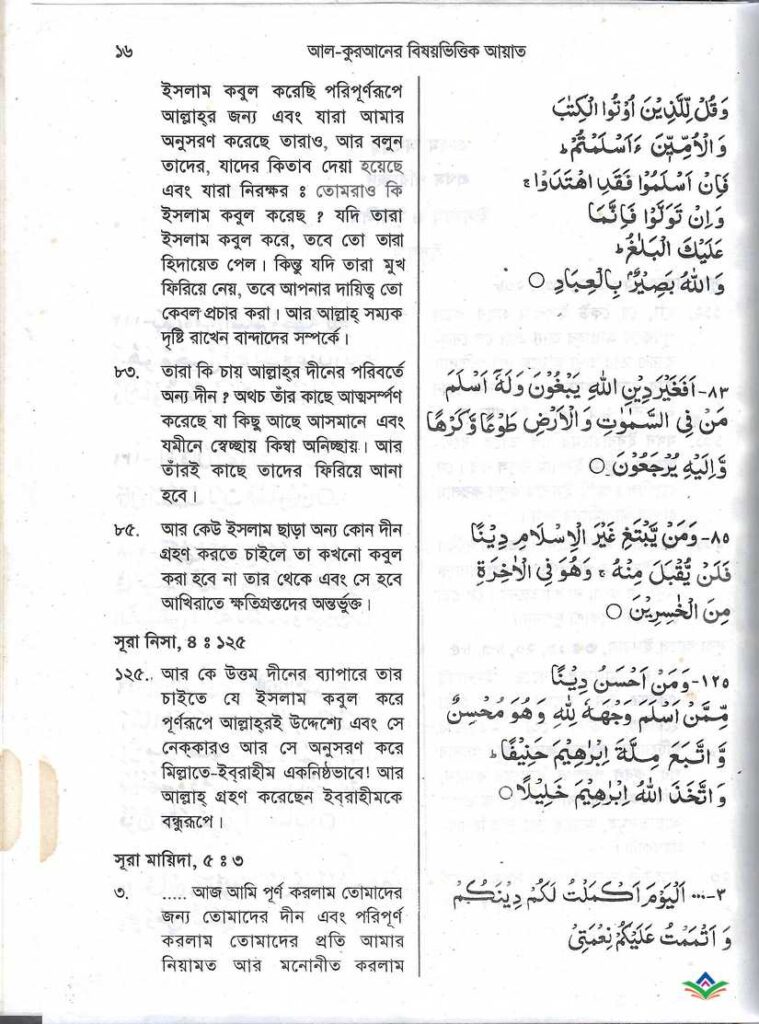 ১৬
আল-কুরআনের বিষয়ভিত্তিক আয়াত
ইসলাম কবুল করেছি পরিপূর্ণরূপে
আল্লাহ্‌র জন্য এবং যারা আমার
অনুসরণ করেছে তারাও, আর বলুন
তাদের, যাদের কিতাব দেয়া হয়েছে
এবং যারা নিরক্ষর ঃ তোমরাও কি
ইসলাম কবুল করেছ ? যদি তারা
ইসলাম কবুল করে, তবে তো তারা
হিদায়েত পেল। কিন্তু যদি তারা মুখ
ফিরিয়ে নেয়, তবে আপনার দায়িত্ব তো
কেবল প্রচার করা। আর আল্লাহ্ সম্যক
দৃষ্টি রাখেন বান্দাদের সম্পর্কে।
৮৩. তারা কি চায় আল্লাহ্‌র দীনের পরিবর্তে
অন্য দীন ? অথচ তাঁর কাছে আত্মসর্ম্পণ
করেছে যা কিছু আছে আসমানে এবং
যমীনে স্বেচ্ছায় কিম্বা অনিচ্ছায়। আর
তাঁরই কাছে তাদের ফিরিয়ে আনা
হবে।
৮৫. আর কেউ ইসলাম ছাড়া অন্য কোন দীন
গ্রহণ করতে চাইলে তা কখনো কবুল
করা হবে না তার থেকে এবং সে হবে
আখিরাতে ক্ষতিগ্রস্তদের অন্তর্ভুক্ত।
সূরা নিসা, ৪ ঃ ১২৫
১২৫. আর কে উত্তম দীনের ব্যাপারে তার
চাইতে যে ইসলাম কবুল করে
পূর্ণরূপে আল্লাহ্‌রই উদ্দেশ্যে এবং সে
নেক্‌কারও আর সে অনুসরণ করে
মিল্লাতে-ইব্‌রাহীম একনিষ্ঠভাবে! আর
আল্লাহ্ গ্রহণ করেছেন ইব্‌রাহীমকে
বন্ধুরূপে।
সূরা মায়িদা, ৫ ঃ ৩
৩. ..... আজ আমি পূর্ণ করলাম তোমাদের
জন্য তোমাদের দীন এবং পরিপূর্ণ
করলাম তোমাদের প্রতি আমার
নিয়ামত আর মনোনীত করলাম
وَقُلْ لِّلَّذِيْنَ اُوْتُوا الْكِتٰبَ
وَالْاُمِّيّٖنَ ءَاَسْلَمْتُمْ ؕ
فَاِنْ اَسْلَمُوْا فَقَدِ اهْتَدَوْا ۚ
وَاِنْ تَوَلَّوْا فَاِنَّمَا
عَلَيْكَ الْبَلٰغُ ؕ
وَاللّٰهُ بَصِيْرٌۢ بِالْعِبَادِ ○
٨٣- اَفَغَيْرَ دِيْنِ اللّٰهِ يَبْغُوْنَ وَلَهٗۤ اَسْلَمَ
مَنْ فِى السَّمٰوٰتِ وَالْاَرْضِ طَوْعًا وَّكَرْهًا
وَّاِلَيْهِ يُرْجَعُوْنَ ○
٨٥- وَمَنْ يَّبْتَغِ غَيْرَ الْاِسْلَامِ دِيْنًا
فَلَنْ يُّقْبَلَ مِنْهُ ۚ وَهُوَ فِى الْاٰخِرَةِ
مِنَ الْخٰسِرِيْنَ ○
١٢٥- وَمَنْ اَحْسَنُ دِيْنًا
مِّمَّنْ اَسْلَمَ وَجْهَهٗ لِلّٰهِ وَهُوَ مُحْسِنٌ
وَّاتَّبَعَ مِلَّةَ اِبْرٰهِيْمَ حَنِيْفًا ؕ
وَاتَّخَذَ اللّٰهُ اِبْرٰهِيْمَ خَلِيْلًا ○
٣- ... اَلْيَوْمَ اَكْمَلْتُ لَكُمْ دِيْنَكُمْ
وَاَتْمَمْتُ عَلَيْكُمْ نِعْمَتِىْ